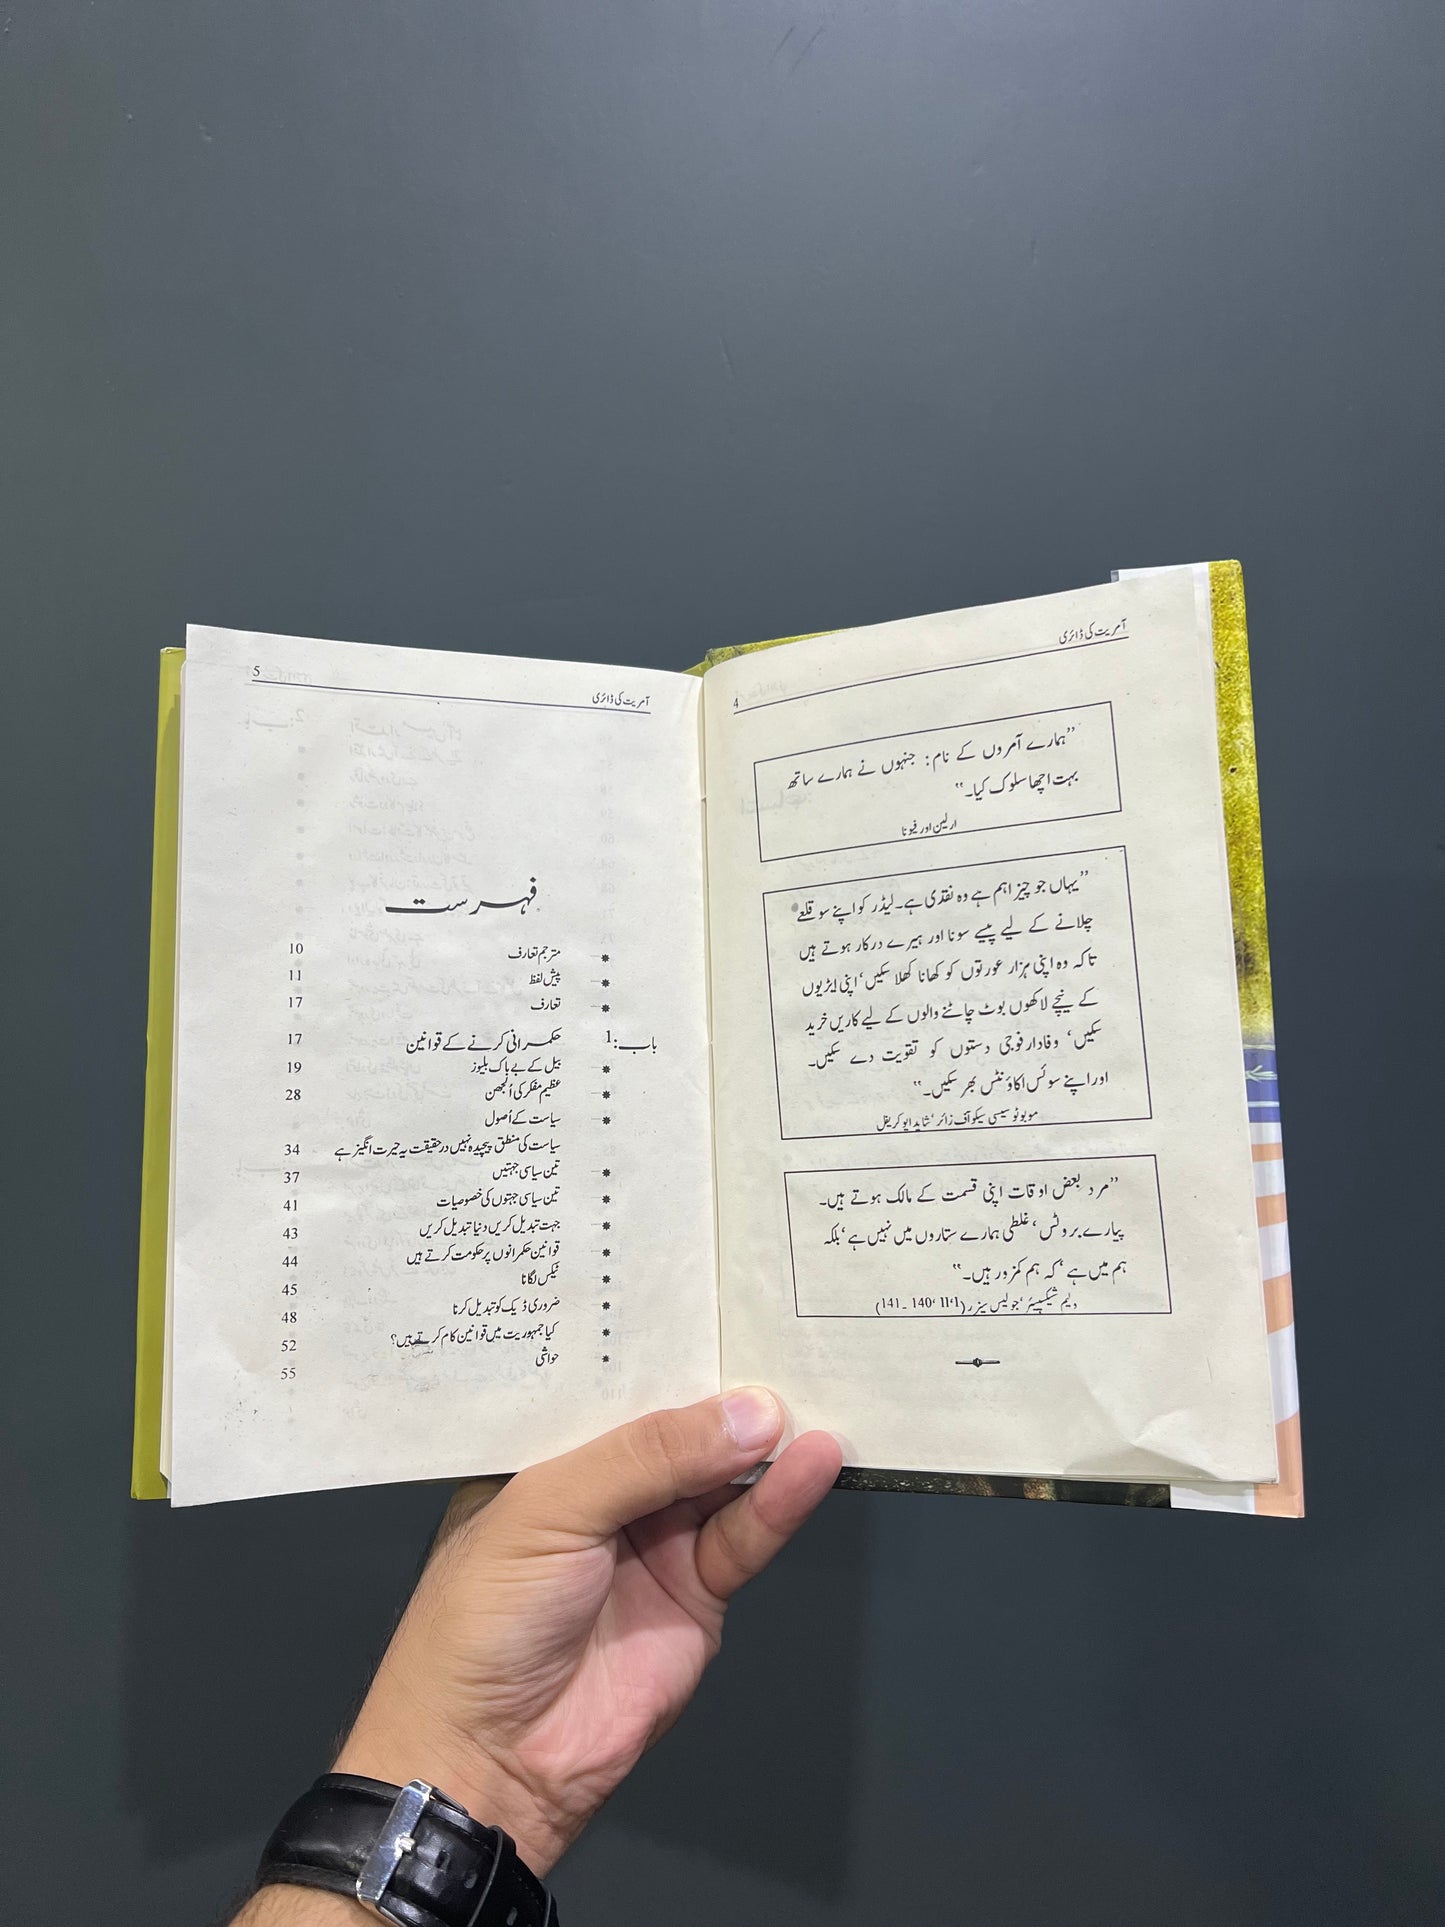 آمریت کی ڈائری
4
”ہمارے آمروں کے نام: جنہوں نے ہمارے ساتھ
بہت اچھا سلوک کیا۔“
ارلین اور فیونا
”یہاں جو چیز اہم ہے وہ نقدی ہے۔ لیڈر کو اپنے سو قلعے
چلانے کے لیے پیسے سونا اور ہیرے درکار ہوتے ہیں
تاکہ وہ اپنی ہزار عورتوں کو کھانا کھلا سکیں، اپنی ایڑیوں
کے نیچے لاکھوں بوٹ چاٹنے والوں کے لیے کاریں خرید
سکیں، وفادار فوجی دستوں کو تقویت دے سکیں۔
اور اپنے سوئس اکاؤنٹس بھر سکیں۔“
موبوٹو سیسی سیکو آف زائر، شاید ابو کریفل
”مرد بعض اوقات اپنی قسمت کے مالک ہوتے ہیں۔
پیارے بروٹس، غلطی ہمارے ستاروں میں نہیں ہے، بلکہ
ہم میں ہے، کہ ہم کمزور ہیں۔“
ولیم شیکسپیئر، جولیس سیزر (I، II، 140۔ 141)
5
آمریت کی ڈائری
فہرست
مترجم تعارف 10
پیش لفظ 11
تعارف 17
باب:1 حکمرانی کرنے کے قوانین 17
بیل کے بے باک بلیوز 19
عظیم مفکر کی اُلجھن 28
سیاست کے اُصول
سیاست کی منطق پیچیدہ نہیں درحقیقت یہ حیرت انگیز ہے 34
تین سیاسی جہتیں 37
تین سیاسی جہتوں کی خصوصیات 41
جہت تبدیل کریں دنیا تبدیل کریں 43
قوانین حکمرانوں پر حکومت کرتے ہیں 44
ٹیکس لگانا 45
ضروری ڈیک کو تبدیل کرنا 48
کیا جمہوریت میں قوانین کام کرتے ہیں؟ 52
حواشی 55